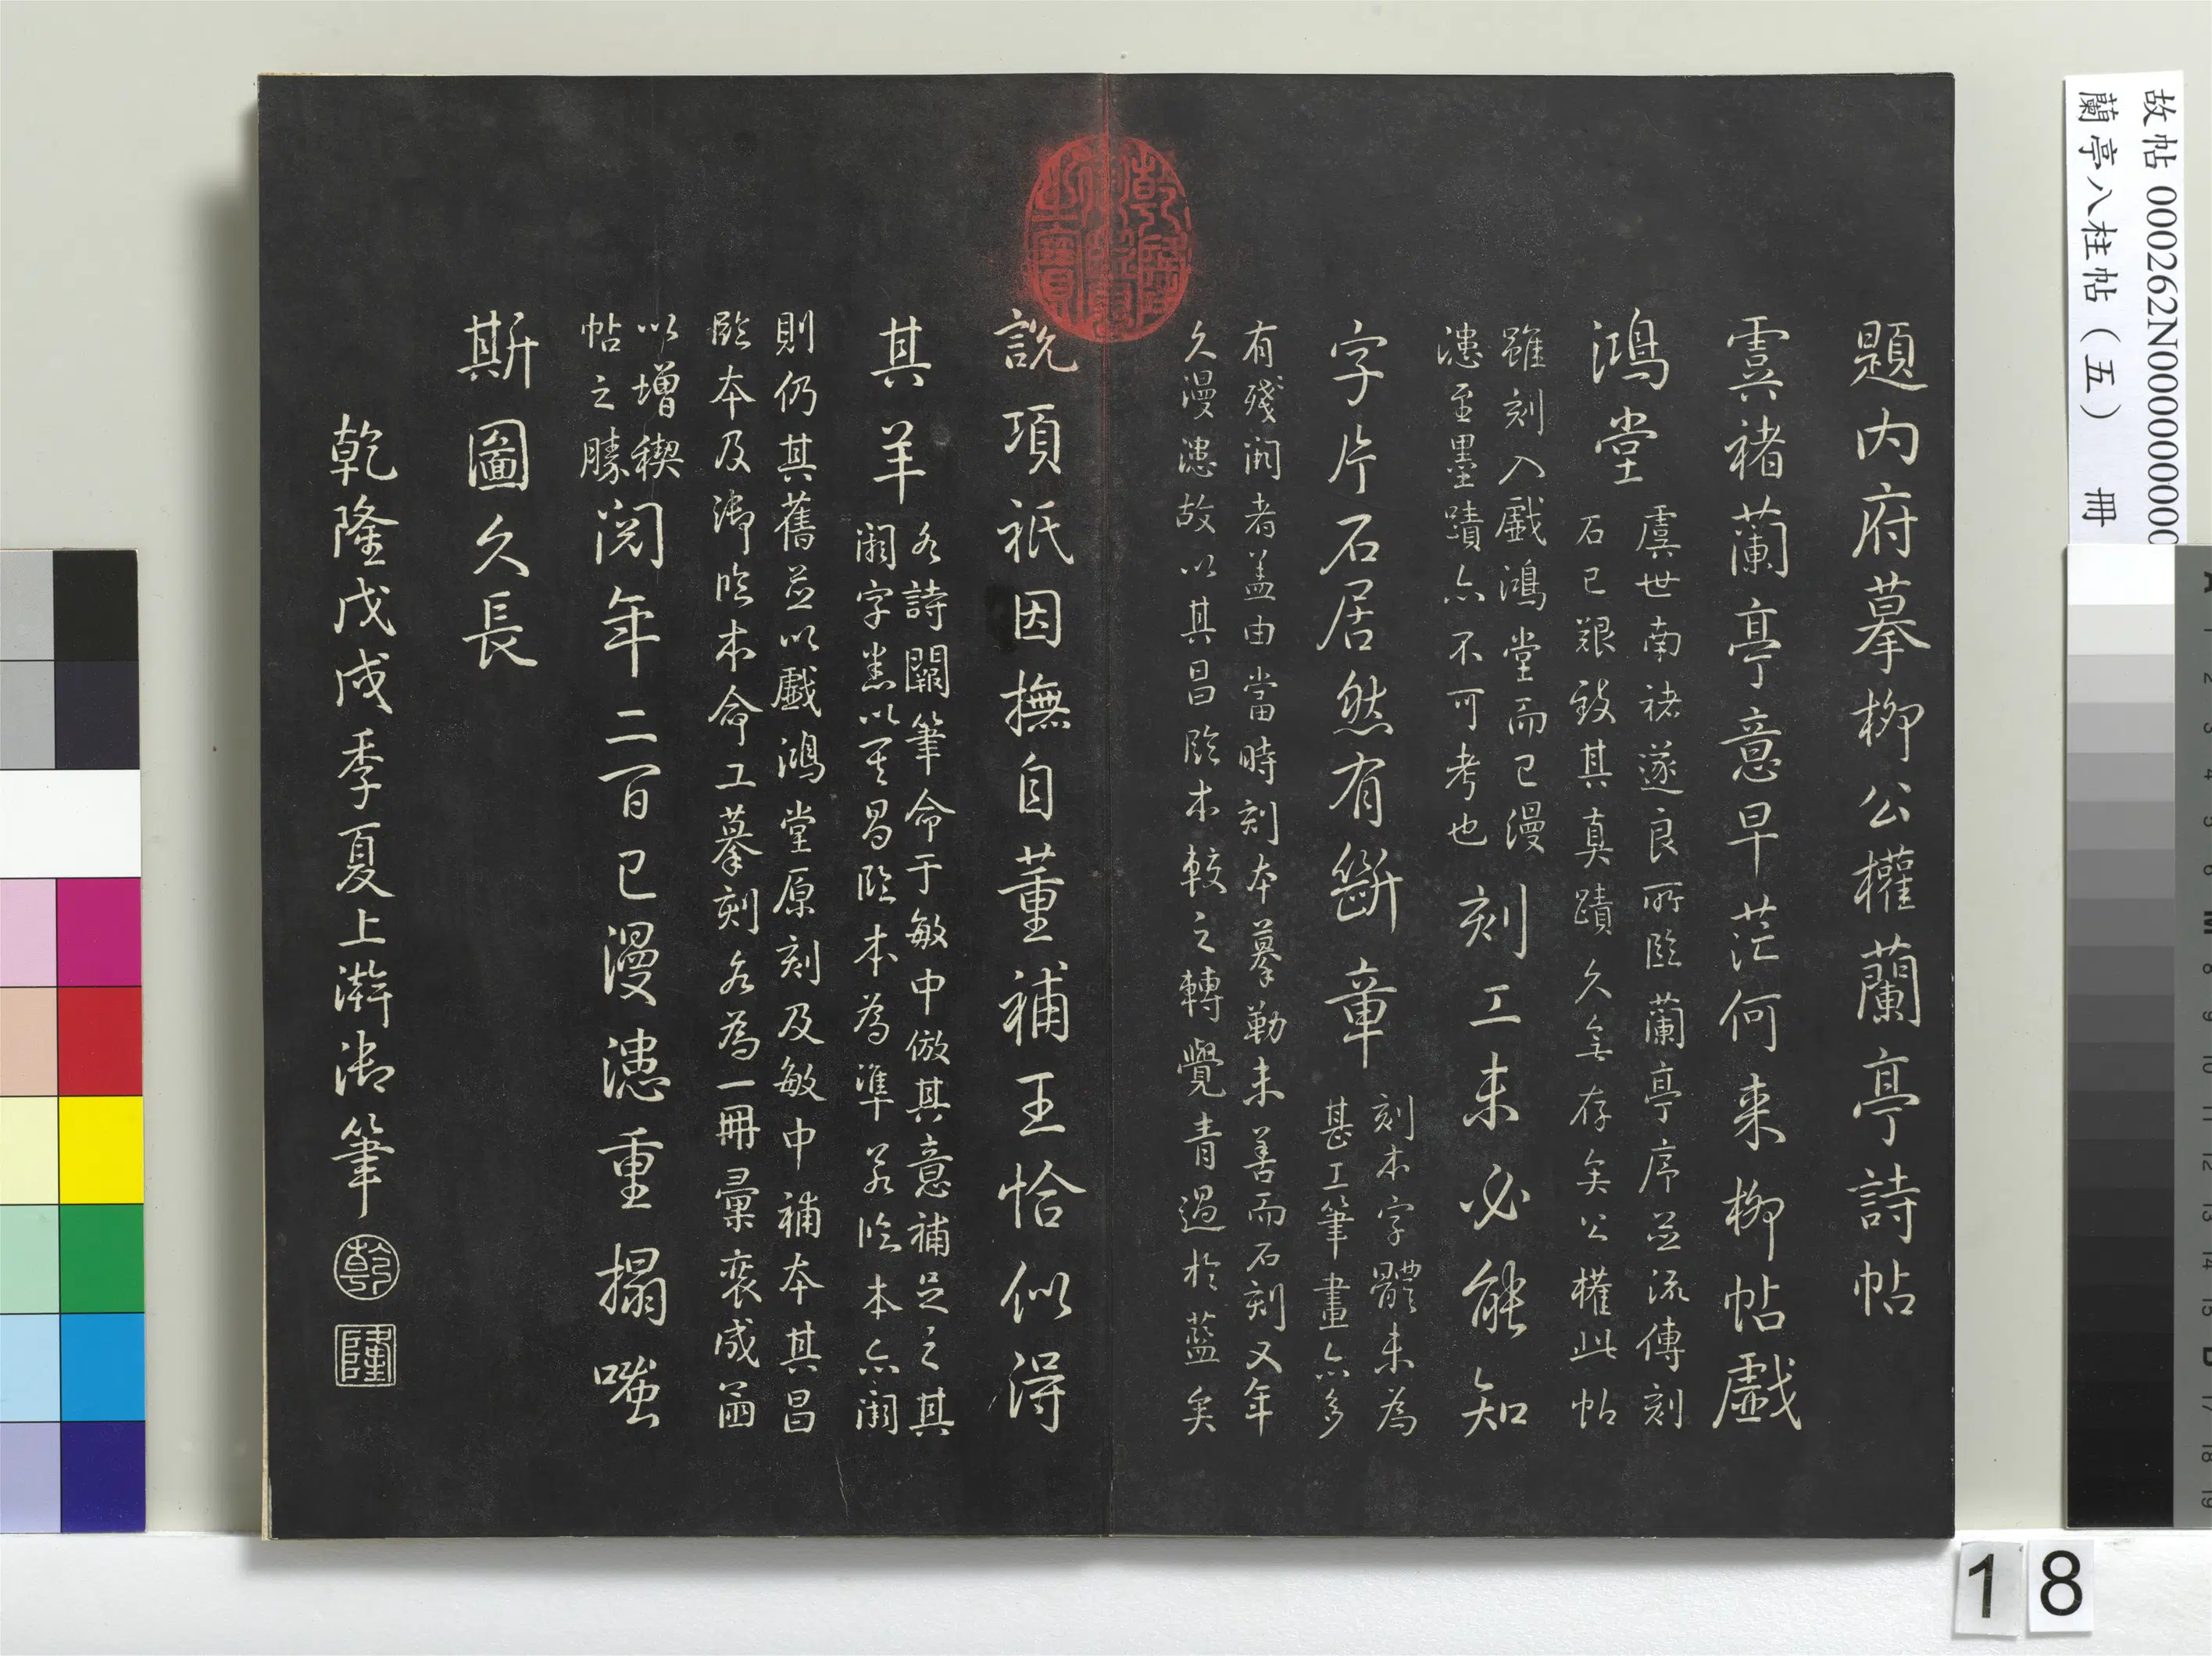 題內府摹柳公權蘭亭詩帖
虞褚蘭亭意早茫何来柳帖戲
鴻堂
虞世南褚遂良所臨蘭亭序並流傳刻
石已艱致其真蹟久無存矣公權此帖
雖刻入戲鴻堂而已漫
漶至墨蹟亦不可考也
刻工未必能知
字片石居然有斷章
刻本字體未為
甚工筆畫亦多
有殘闕者盖由當時刻本摹勒未善而石刻又年
久漫漶故以其昌臨本較之轉覺青過於藍矣
說項祇因撫自董補王恰似得
其羊
各詩闕筆命于敏中倣其意補足之其
闕字悉以其昌臨本為準若臨本亦闕
則仍其舊並以戲鴻堂原刻及敏中補本其昌
臨本及御臨本命工摹刻各為一冊彙裘成函
以增稧
帖之勝
閱年二百已漫漶重搨嗤
斯圖久長
乾隆戊戌季夏上澣御筆
乾
隆
乾隆御覽之寶
故帖 000262N000000000
蘭亭八柱帖（五） 冊
18